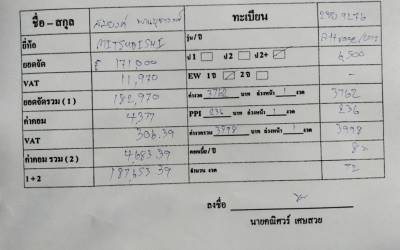 ชื่อ – สกุล ทะเบียน
ยี่ห้อ MITSUBISHI รุ่น/ปี
ยอดจัด 171,000 ป1 ป2 ป2+ 6,500
VAT 11,970 EW 1ปี 2ปี -
ยอดจัดรวม (1) 182,970 ค่างวด 3762 บาท ล่วงหน้า 1 งวด 3762
ค่าคอม 4377 PPI 236 บาท ล่วงหน้า 1 งวด 236
VAT 306.39 ค่างวดรวม 3998 บาท ล่วงหน้า 1 งวด 3998
ค่าคอม รวม (2) 4,683.39 ดอกเบี้ย/ปี
1+2 187,653.39 จำนวน งวด 72
ลงชื่อ
นายคณิศวร์ เศษสวย